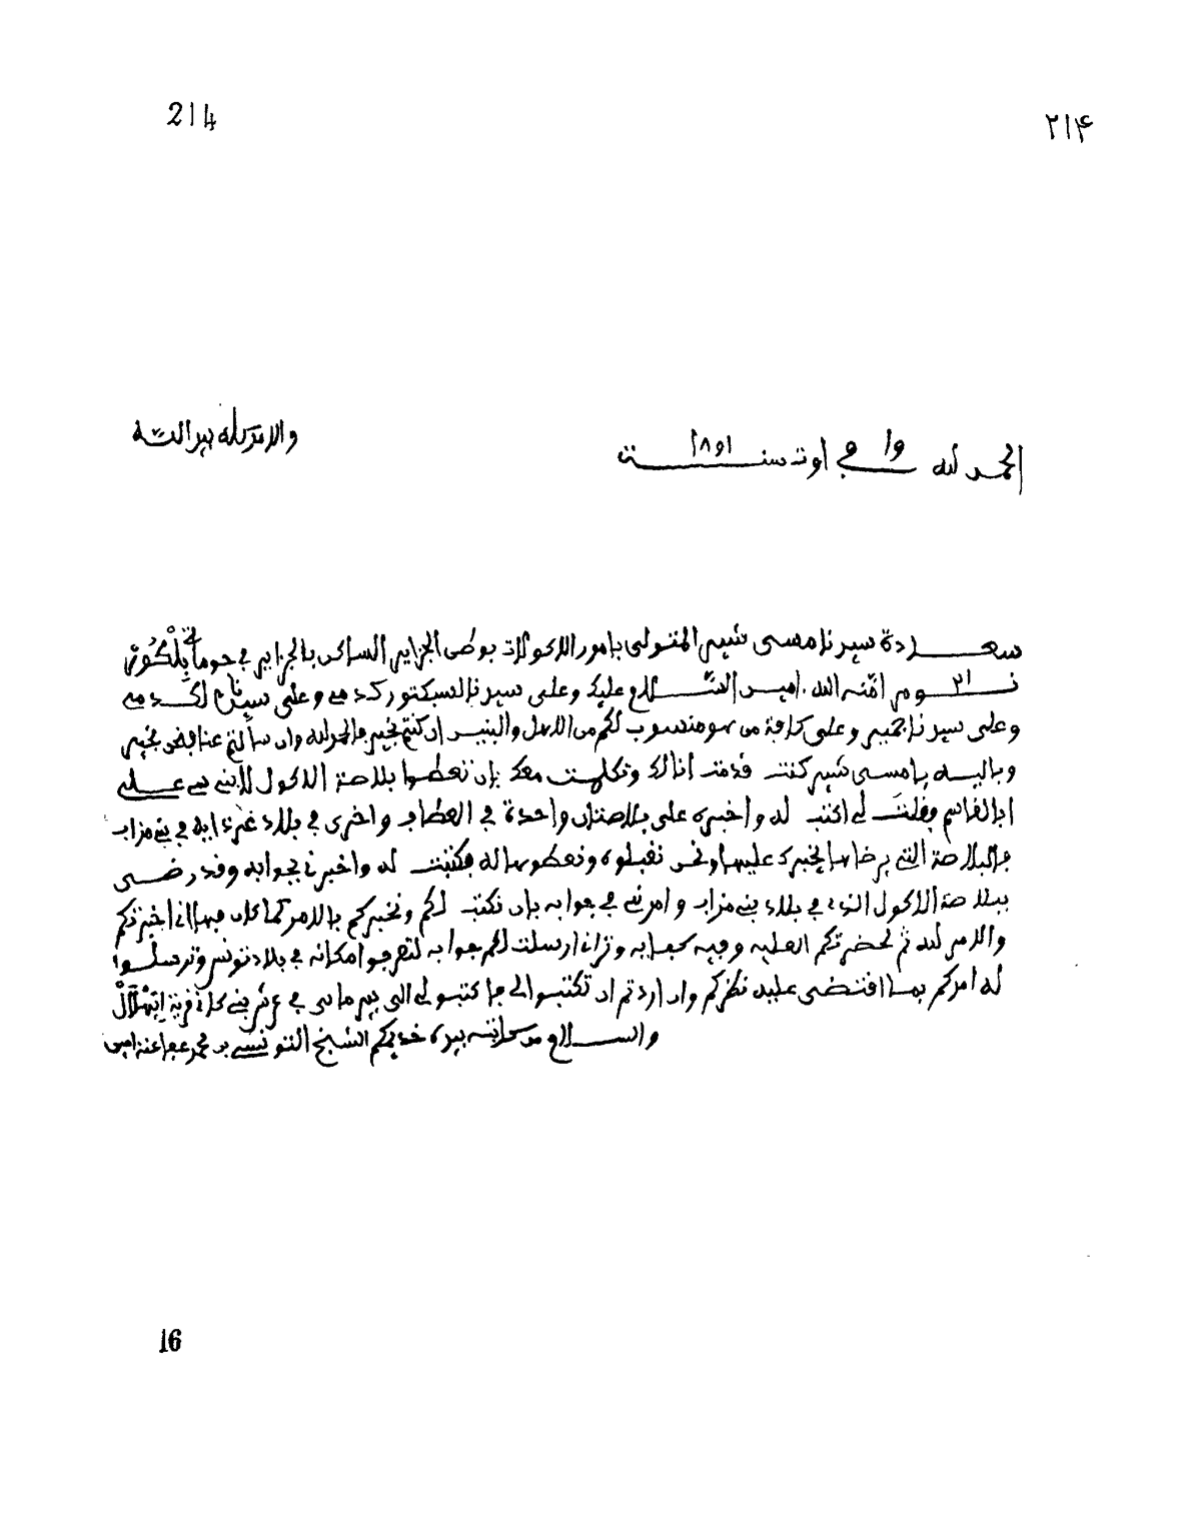 214
٢١۴
الحمد لله وا في اوت سنت ١٨٥١
والامر كله بيد الله
سعادة سيدنا مسي المتولى بامور الاكولات بوطن الجزاير الساكن بالجزاير في حومة
نوم امنه الله امين السلام عليك وعلى سيدنا وعلى سيدنا
وعلى سيدنا وعلى كافة من هو منسوب لكم من الاهل والبنين ان كنتم بخير فالحمد لله وان سالتم عنا فنحن بخير
يا مسي كنت قدمت انا لك وتكلمت معك بان تعطوا بلاصة الاكول لابني سي علي
ابا لقاسم وقلت لي اكتب له واخبره على بلاصتان واحدة في العطاب واخرى في بلاد غرداية في بني مزاب
فالبلاصة التي يرضاها يخبرك عليها ونحن نقبلوه ونعطوها له فكتبت له واخبرني بجوابه وقد رضى
ببلاصة الاكول الذي في بلاد بني مزاب وامرني في جوابه بان نكتب لكم ونخبركم بالامر كما كان فها اني اخبرتكم
والامر لله ثم لحضرتكم العلية وفيه كفاية وتراني ارسلت لكم جوابه لتعرفوا مكانه في بلاد تونس وترسلوا
له امركم بما اقتضى عليه نظركم وان اردتم ان تكتبوا لي فاكتبوا لي الى بير في عرش بني قرية
والسلام من كاتبه بيده خديمكم الشيخ التونسي بن محمد عفا عنه امين
16